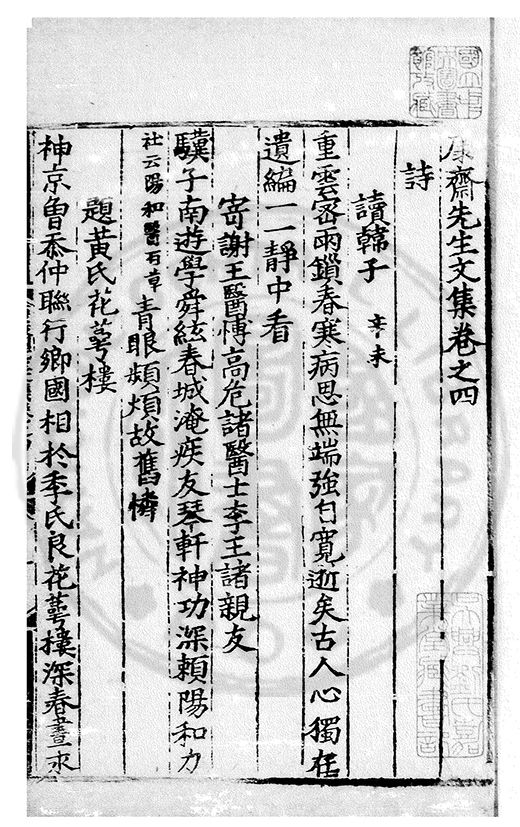 康齋先生文集卷之四
詩
讀韓子 辛未
重雲宻雨鎖春寒病思無端強自寬逝矣古人心獨在
遺編一一靜中看
寄謝王醫博高危諸醫士李王諸親友
驥子南遊學舜絃春城淹疾友琴軒神功深頼陽和力
社云陽和醫石章青眼頻煩故舊憐
題黃氏花萼樓
神京曽忝仲聯行鄉國相於季氏良花萼樓深春晝永